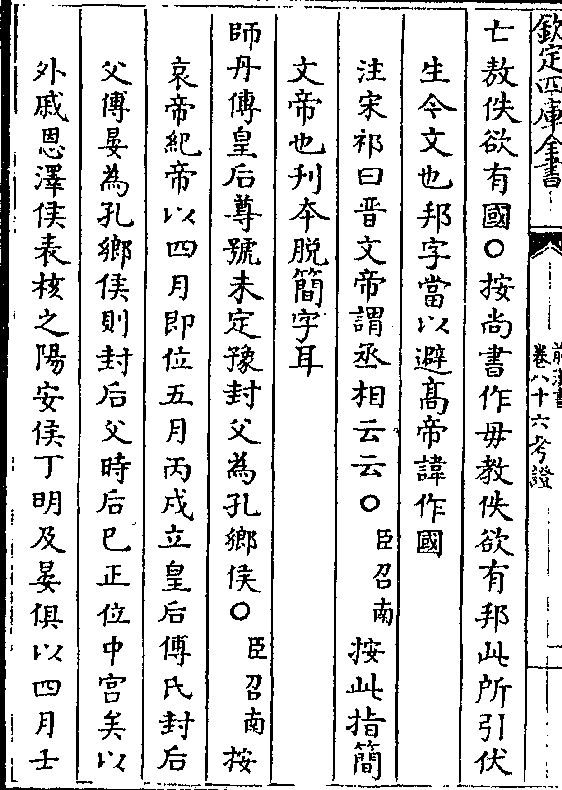 欽定四庫全書
前漢書
卷八十六考證
亡敖佚欲有國〇按尚書作毋教佚欲有邦此所引伏
生今文也邦字當以避髙帝諱作國
注宋祁曰晋文帝謂丞相云云〇臣召南按此指簡
文帝也刋本脱簡字耳
師丹傳皇后尊號未定豫封父為孔鄉侯〇臣召南按
哀帝紀帝以四月即位五月丙戌立皇后傅氏封后
父傅晏為孔鄉侯則封后父時后已正位中宫矣以
外戚恩澤侯表核之陽安侯丁明及晏俱以四月士